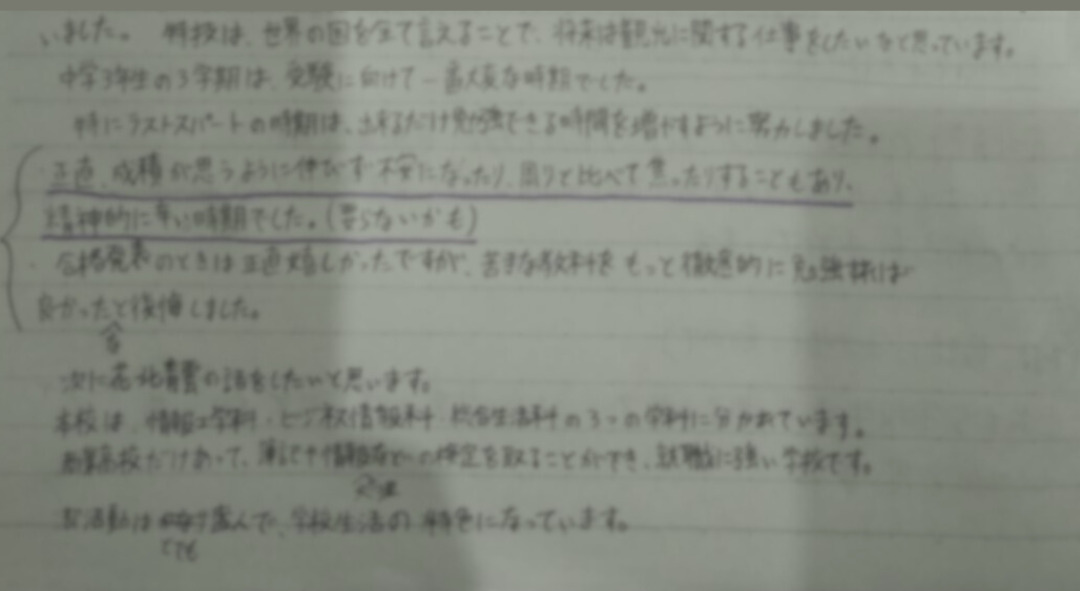 いました。 特技は、世界の国を全て言えることで、将来は観光に関する仕事をしたいなと思っています。
中学3年生の3学期は、受験に向けて一番大変な時期でした。
特にラストスパートの時期は、出来るだけ勉強できる時間を増やすように努力しました。
正直、成績が思うように伸びず不安になったり、周りと比べて焦ったりすることもあり、
精神的に辛い時期でした。(要らないかも)
合格発表のときは正直嬉しかったですが、苦手な教科をもっと徹底的に勉強すれば
良かったと後悔しました。
次に の話をしたいと思います。
本校は、情報工学科・ビジネス情報科・総合生活科の3つの学科に分かれています。
高校だけあって、簿記や情報 の検定を取ることができ、就職に強い学校です。
部活動は 盛んで、学校生活の特色になっています。
とても